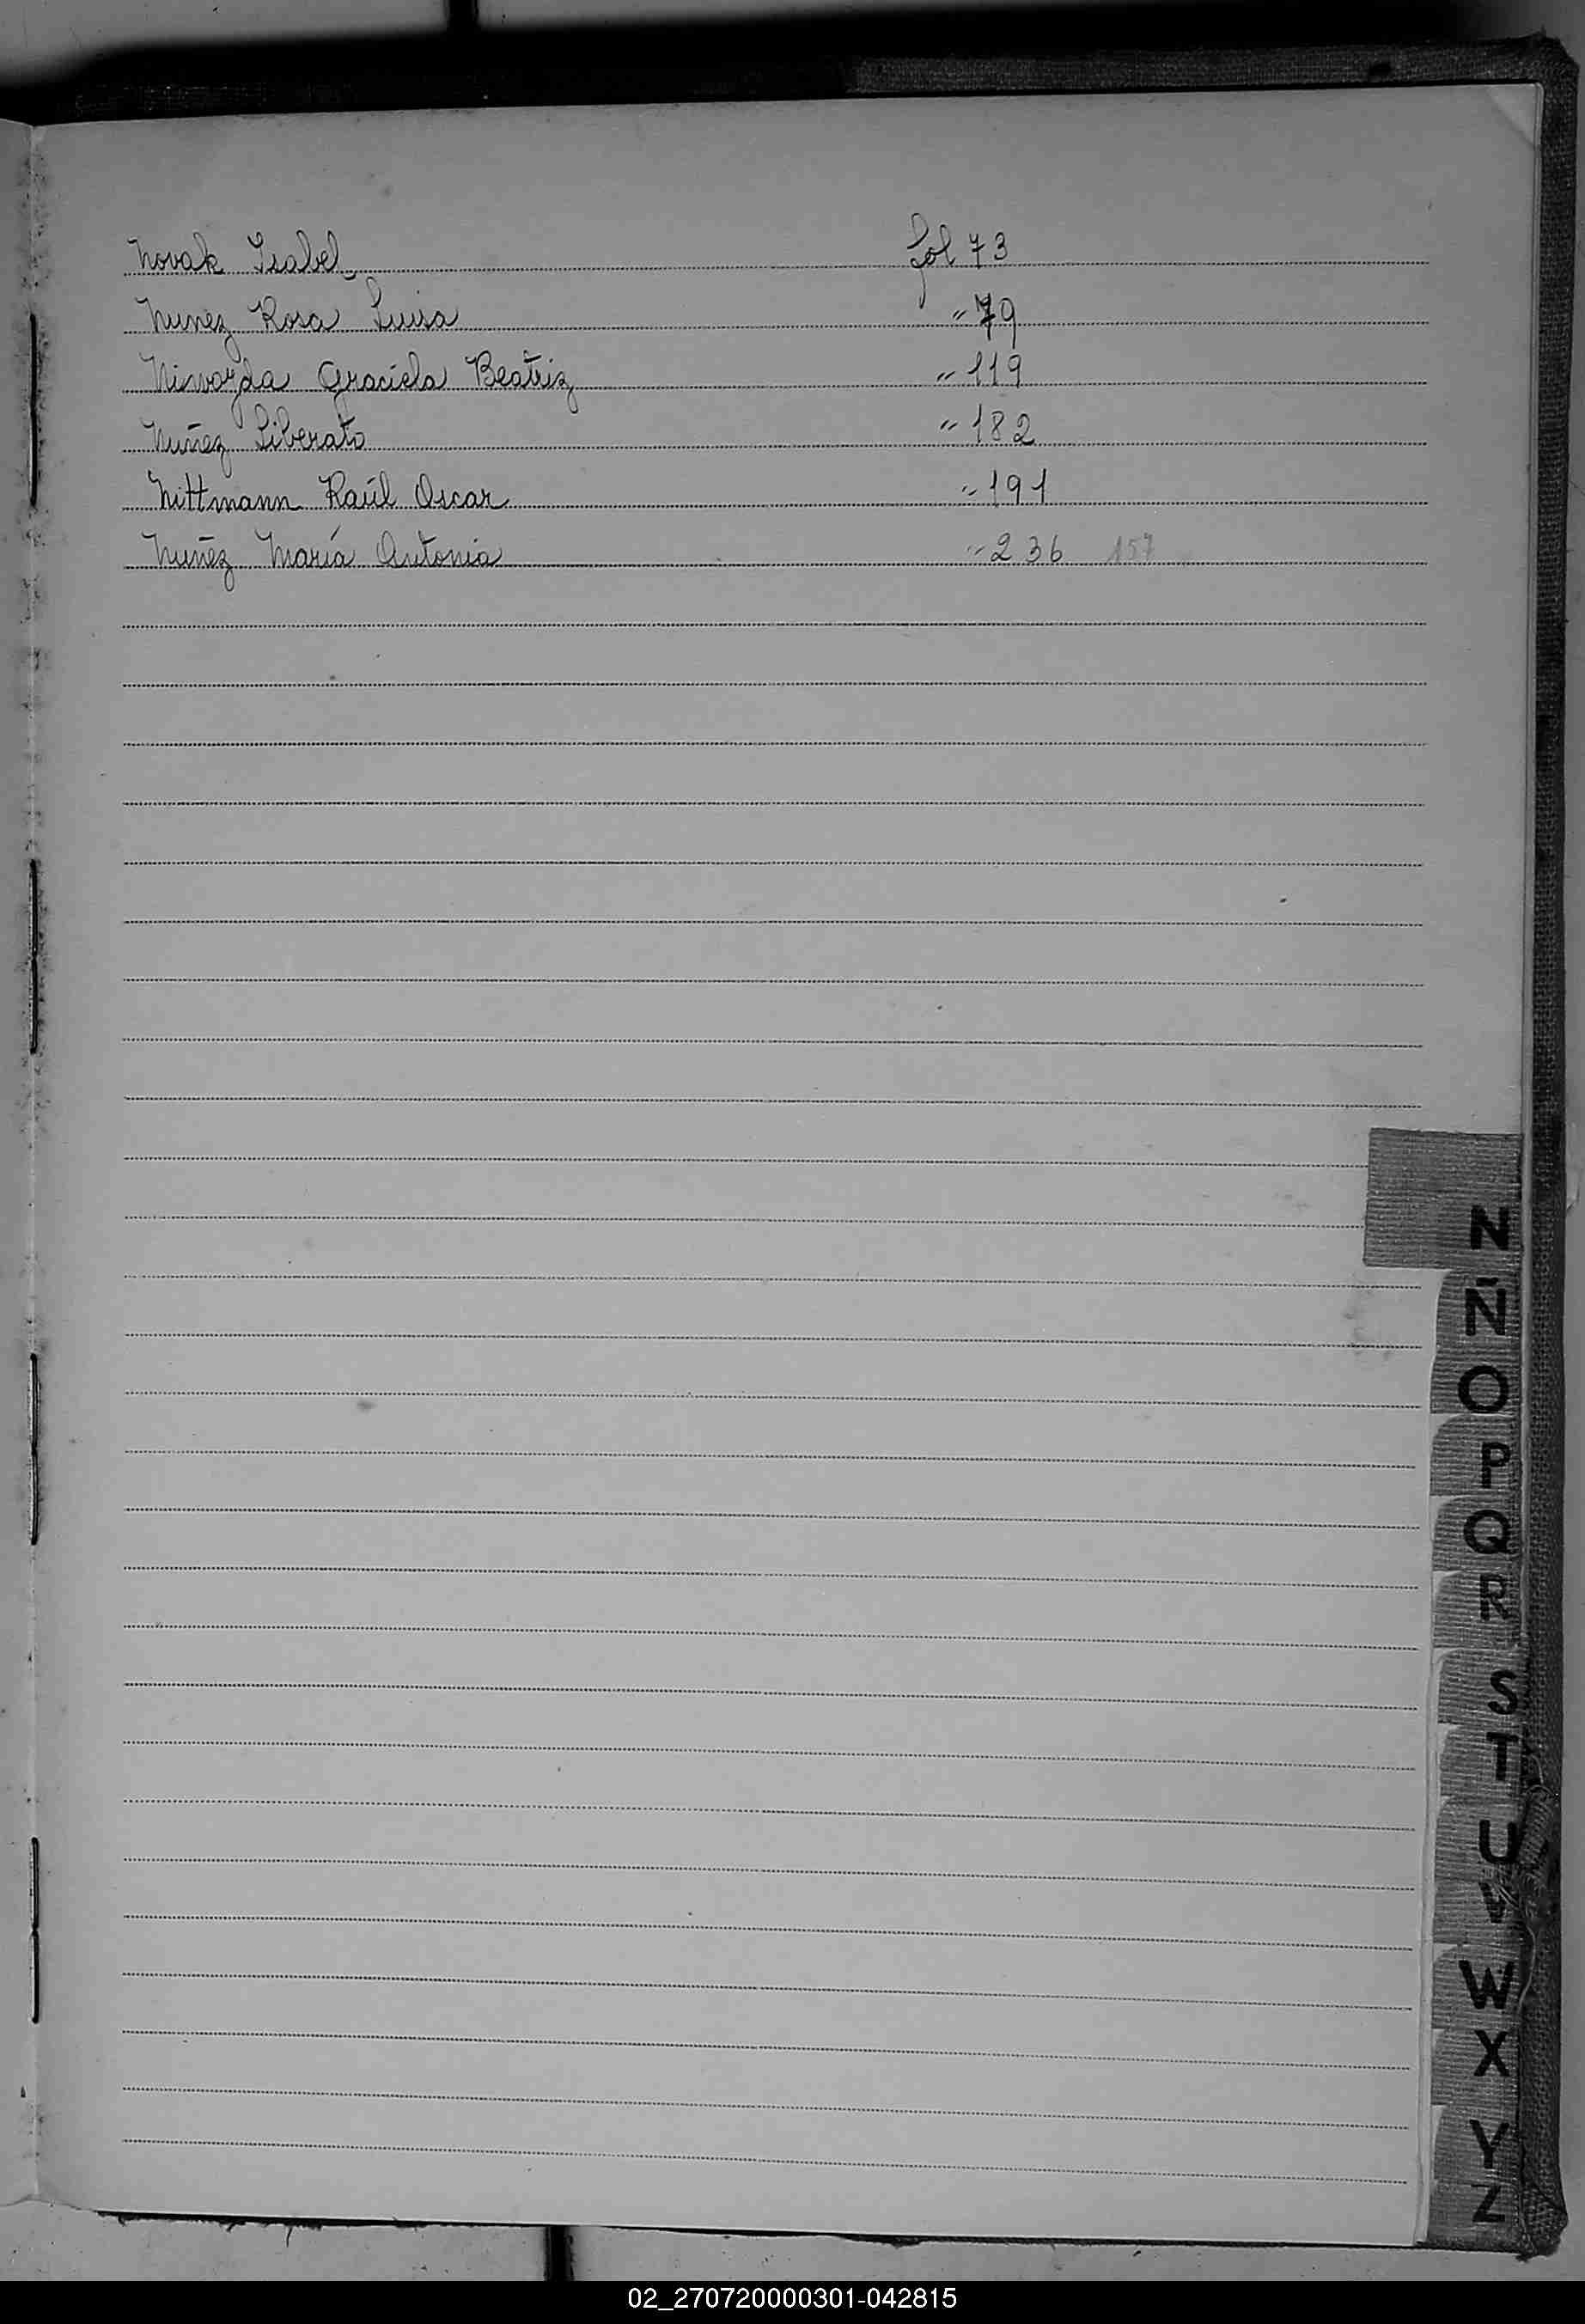 Novak Isabel fol 73
Nunez Rosa Luisa " 79
Graciela Beatriz " 119
Nuñez Liberato " 182
Nittmann Raúl Oscar " 191
Nuñez María Antonia " 236 157
N
Ñ
O
P
Q
R
S
T
U
V
W
X
Y
Z
02_270720000301-042815